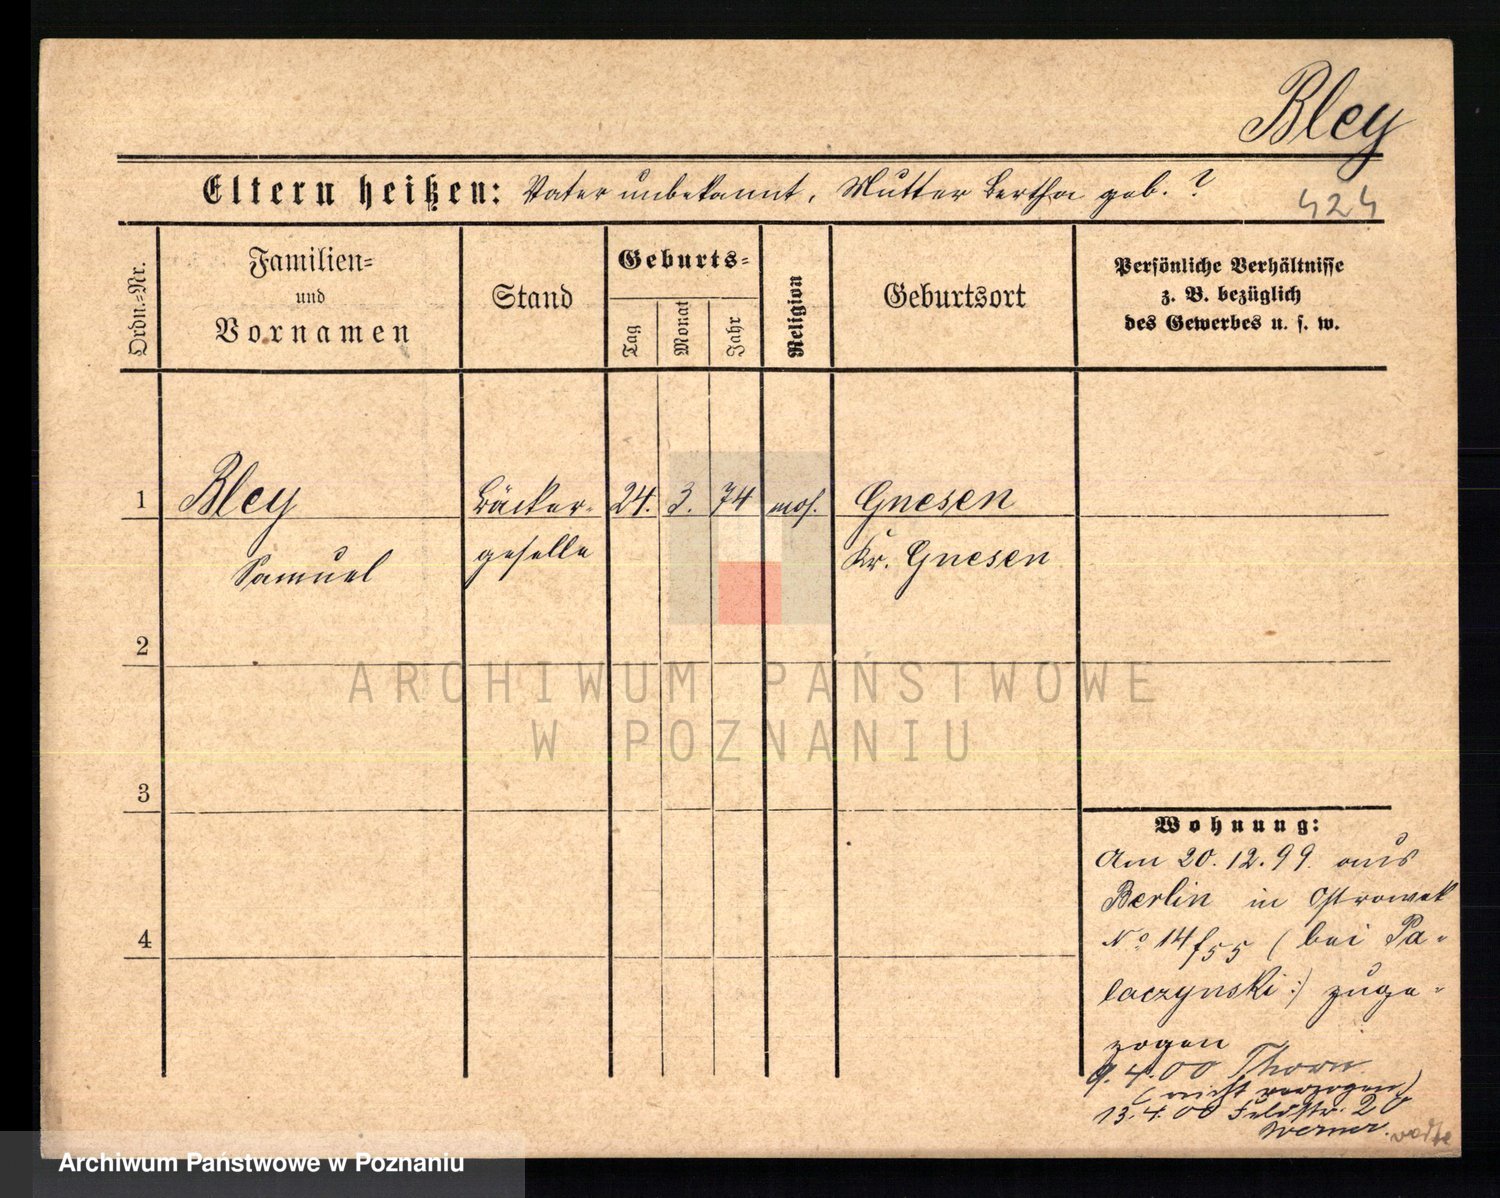 Bley
Eltern heißen: Vater unbekannt, Mutter Bertha geb. ?
424
Ordn.-Nr.
Familien-
und
Vornamen
Stand
Geburts-
Tag
Monat
Jahr
Religion
Geburtsort
Persönliche Verhältnisse
z. B. bezüglich
des Gewerbes u. s. w.
1 Bley Bäcker- 24. 3. 74 mos. Gnesen
Samuel geselle Kr. Gnesen
2
3
4
Wohnung:
Am 20.12.99 aus
Berlin in Ostrowek
No 14/55 (bei Pa-
laczynski:) zuge-
zogen
9.4.00 Thorn
(nicht verzogen)
13.4.00 Feldstr. 20
Werner.
ARCHIWUM PAŃSTWOWE
W POZNANIU
Archiwum Państwowe w Poznaniu